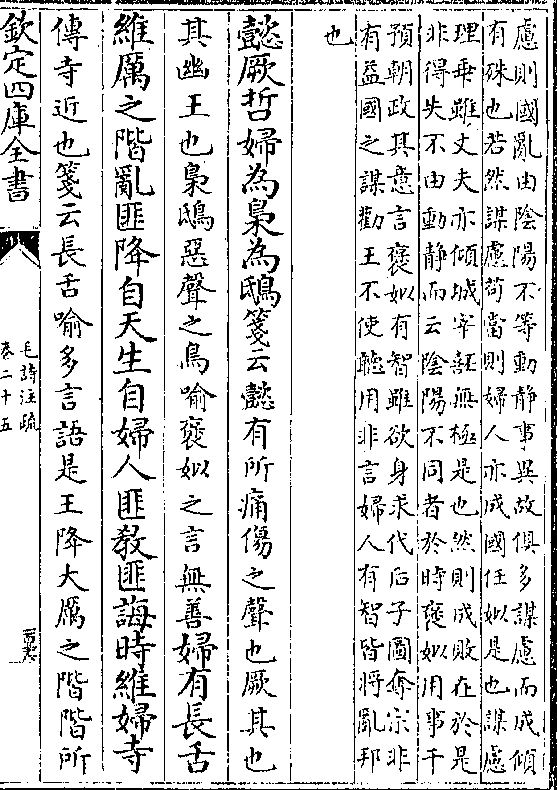 慮則國亂由陰陽不等動静事異故俱多謀慮而成傾
有殊也若然謀慮苟當則婦人亦成國任姒是也謀慮
理乖雖丈夫亦傾城宰嚭無極是也然則成敗在於是
非得失不由動静而云陰陽不同者於時褒姒用事干
預朝政其意言褒姒有智雖欲身求代后子圖奪宗非
有益國之謀勸王不使聽用非言婦人有智皆將亂邦
也
懿厥哲婦為梟為鴟箋云懿有所痛傷之聲也厥其也
其幽王也梟鴟惡聲之鳥喻褒姒之言無善婦有長舌
維厲之階亂匪降自天生自婦人匪教匪誨時維婦寺
傳寺近也箋云長舌喻多言語是王降大厲之階階所
欽定四庫全書
毛詩注疏
卷二十五